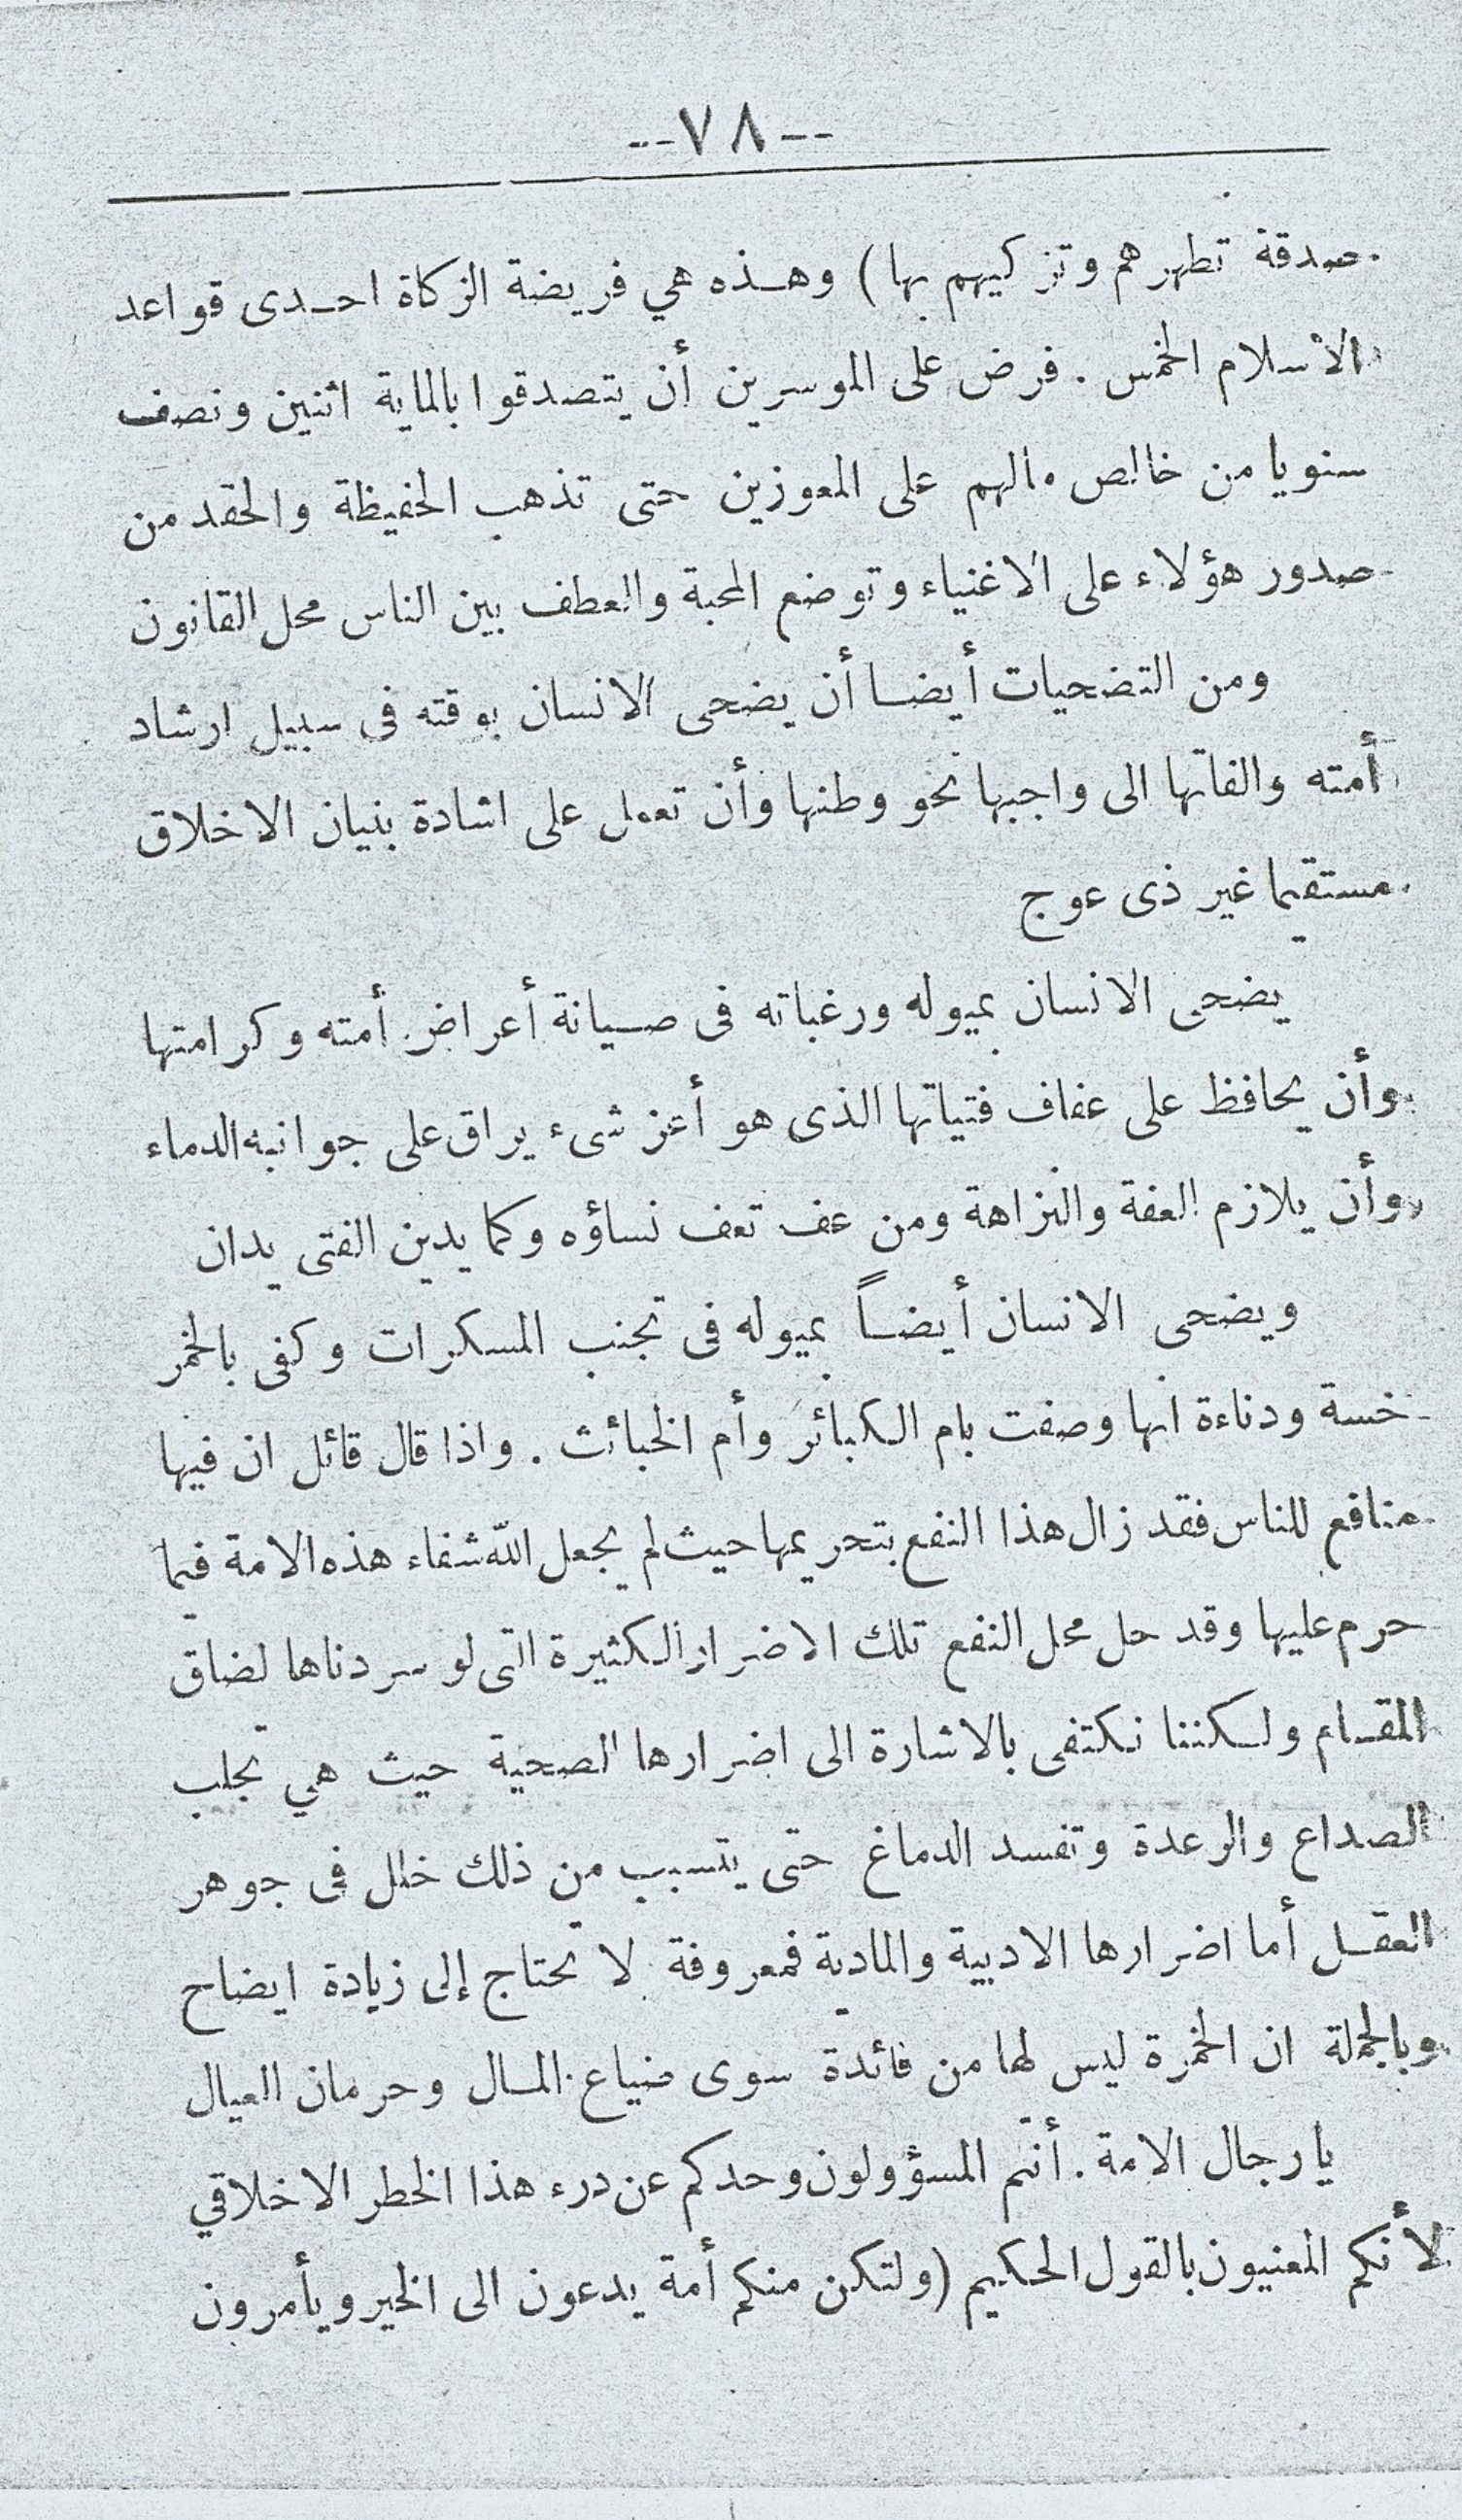 --٧٨--
صدقة تطهرهم وتزكيهم بها) وهذه هي فريضة الزكاة احدى قواعد
الاسلام الخمس . فرض على الموسرين أن يتصدقوا بالماية اثنين ونصف
سنويا من خالص مالهم على المعوزين حتى تذهب الحفيظة والحقد من
صدور هؤلاء على الاغنياء وتوضع المحبة والعطف بين الناس محل القانون
ومن التضحيات أيضا أن يضحى الانسان بوقته فى سبيل ارشاد
أمته والفاتها الى واجبها نحو وطنها وأن تعمل على اشادة بنيان الاخلاق
مستقيما غير ذى عوج
يضحى الانسان بميوله ورغباته فى صيانة أعراض أمته وكرامتها
وأن يحافظ على عفاف فتياتها الذى هو أعز شىء يراق على جوانبه الدماء
وأن يلازم العفة والنزاهة ومن عف تعف نساؤه وكما يدين الفتى يدان
ويضحى الانسان أيضاً بميوله فى تجنب المسكرات وكفى بالخمر
خسة ودناءة انها وصفت بام الكبائر وأم الخبائث . واذا قال قائل ان فيها
منافع للناس فقد زال هذا النفع بتحريمها حيث لم يجعل الله شفاء هذه الامة فيما
حرم عليها وقد حل محل النفع تلك الاضرار الكثيرة التى لو سردناها لضاق
المقام ولكننا نكتفى بالاشارة الى اضرارها الصحية حيث هي تجلب
الصداع والرعدة وتفسد الدماغ حتى يتسبب من ذلك خلل فى جوهر
العقل أما اضرارها الادبية والمادية فمعروفة لا تحتاج إلى زيادة ايضاح
وبالجملة ان الخمرة ليس لها من فائدة سوى ضياع المال وحرمان العيال
يا رجال الامة . أنتم المسؤولون وحدكم عن درء هذا الخطر الاخلاقي
لأنكم المعنيون بالقول الحكيم (ولتكن منكم أمة يدعون الى الخير ويأمرون